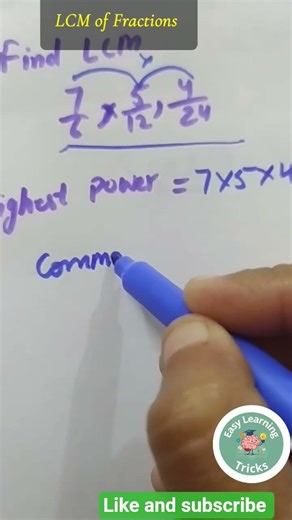 LCM of Fractions
Find LCM
7/6 × 5/12, 4/24
ighest power = 7×5×4
Comm
Easy Learning
Tricks
Like and subscribe